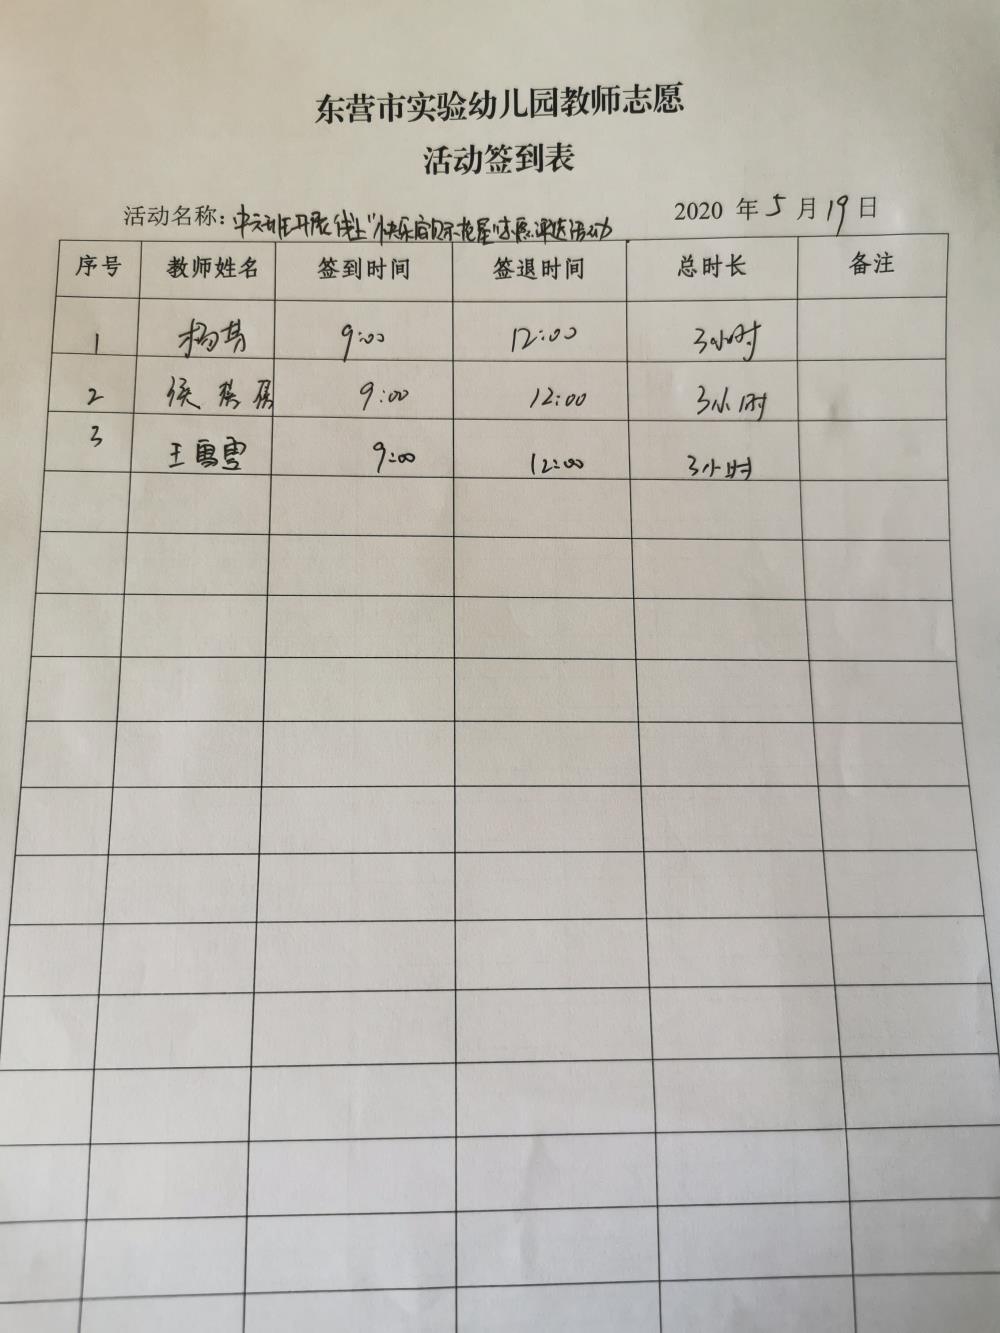 东营市实验幼儿园教师志愿
活动签到表
活动名称: 开展线上"快乐 志愿 活动 2020 年 5 月 19 日
序号 教师姓名 签到时间 签退时间 总时长 备注
1 杨 9:00 12:00 3小时
2 侯 9:00 12:00 3小时
3 王 雪 9:00 12:00 3小时